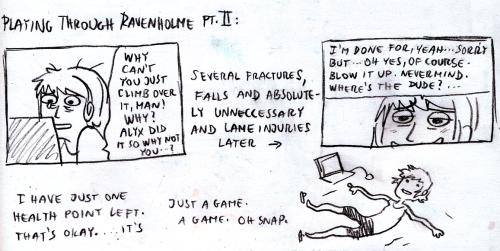 PLAYING THROUGH RAVENHOLME PT. II:
WHY
CAN'T
YOU JUST
CLIMB OVER
IT, MAN!
WHY?
ALYX DID
IT SO WHY NOT
YOU..?
SEVERAL FRACTURES,
FALLS AND ABSOLUTE-
LY UNNECCESSARY
AND LAME INJURIES
LATER →
I'M DONE FOR, YEAH...SORRY
BUT... OH YES, OF COURSE.
BLOW IT UP. NEVERMIND.
WHERE'S THE DUDE?...
I HAVE JUST ONE
HEALTH POINT LEFT.
THAT'S OKAY....IT'S
JUST A GAME.
A GAME. OH SNAP.